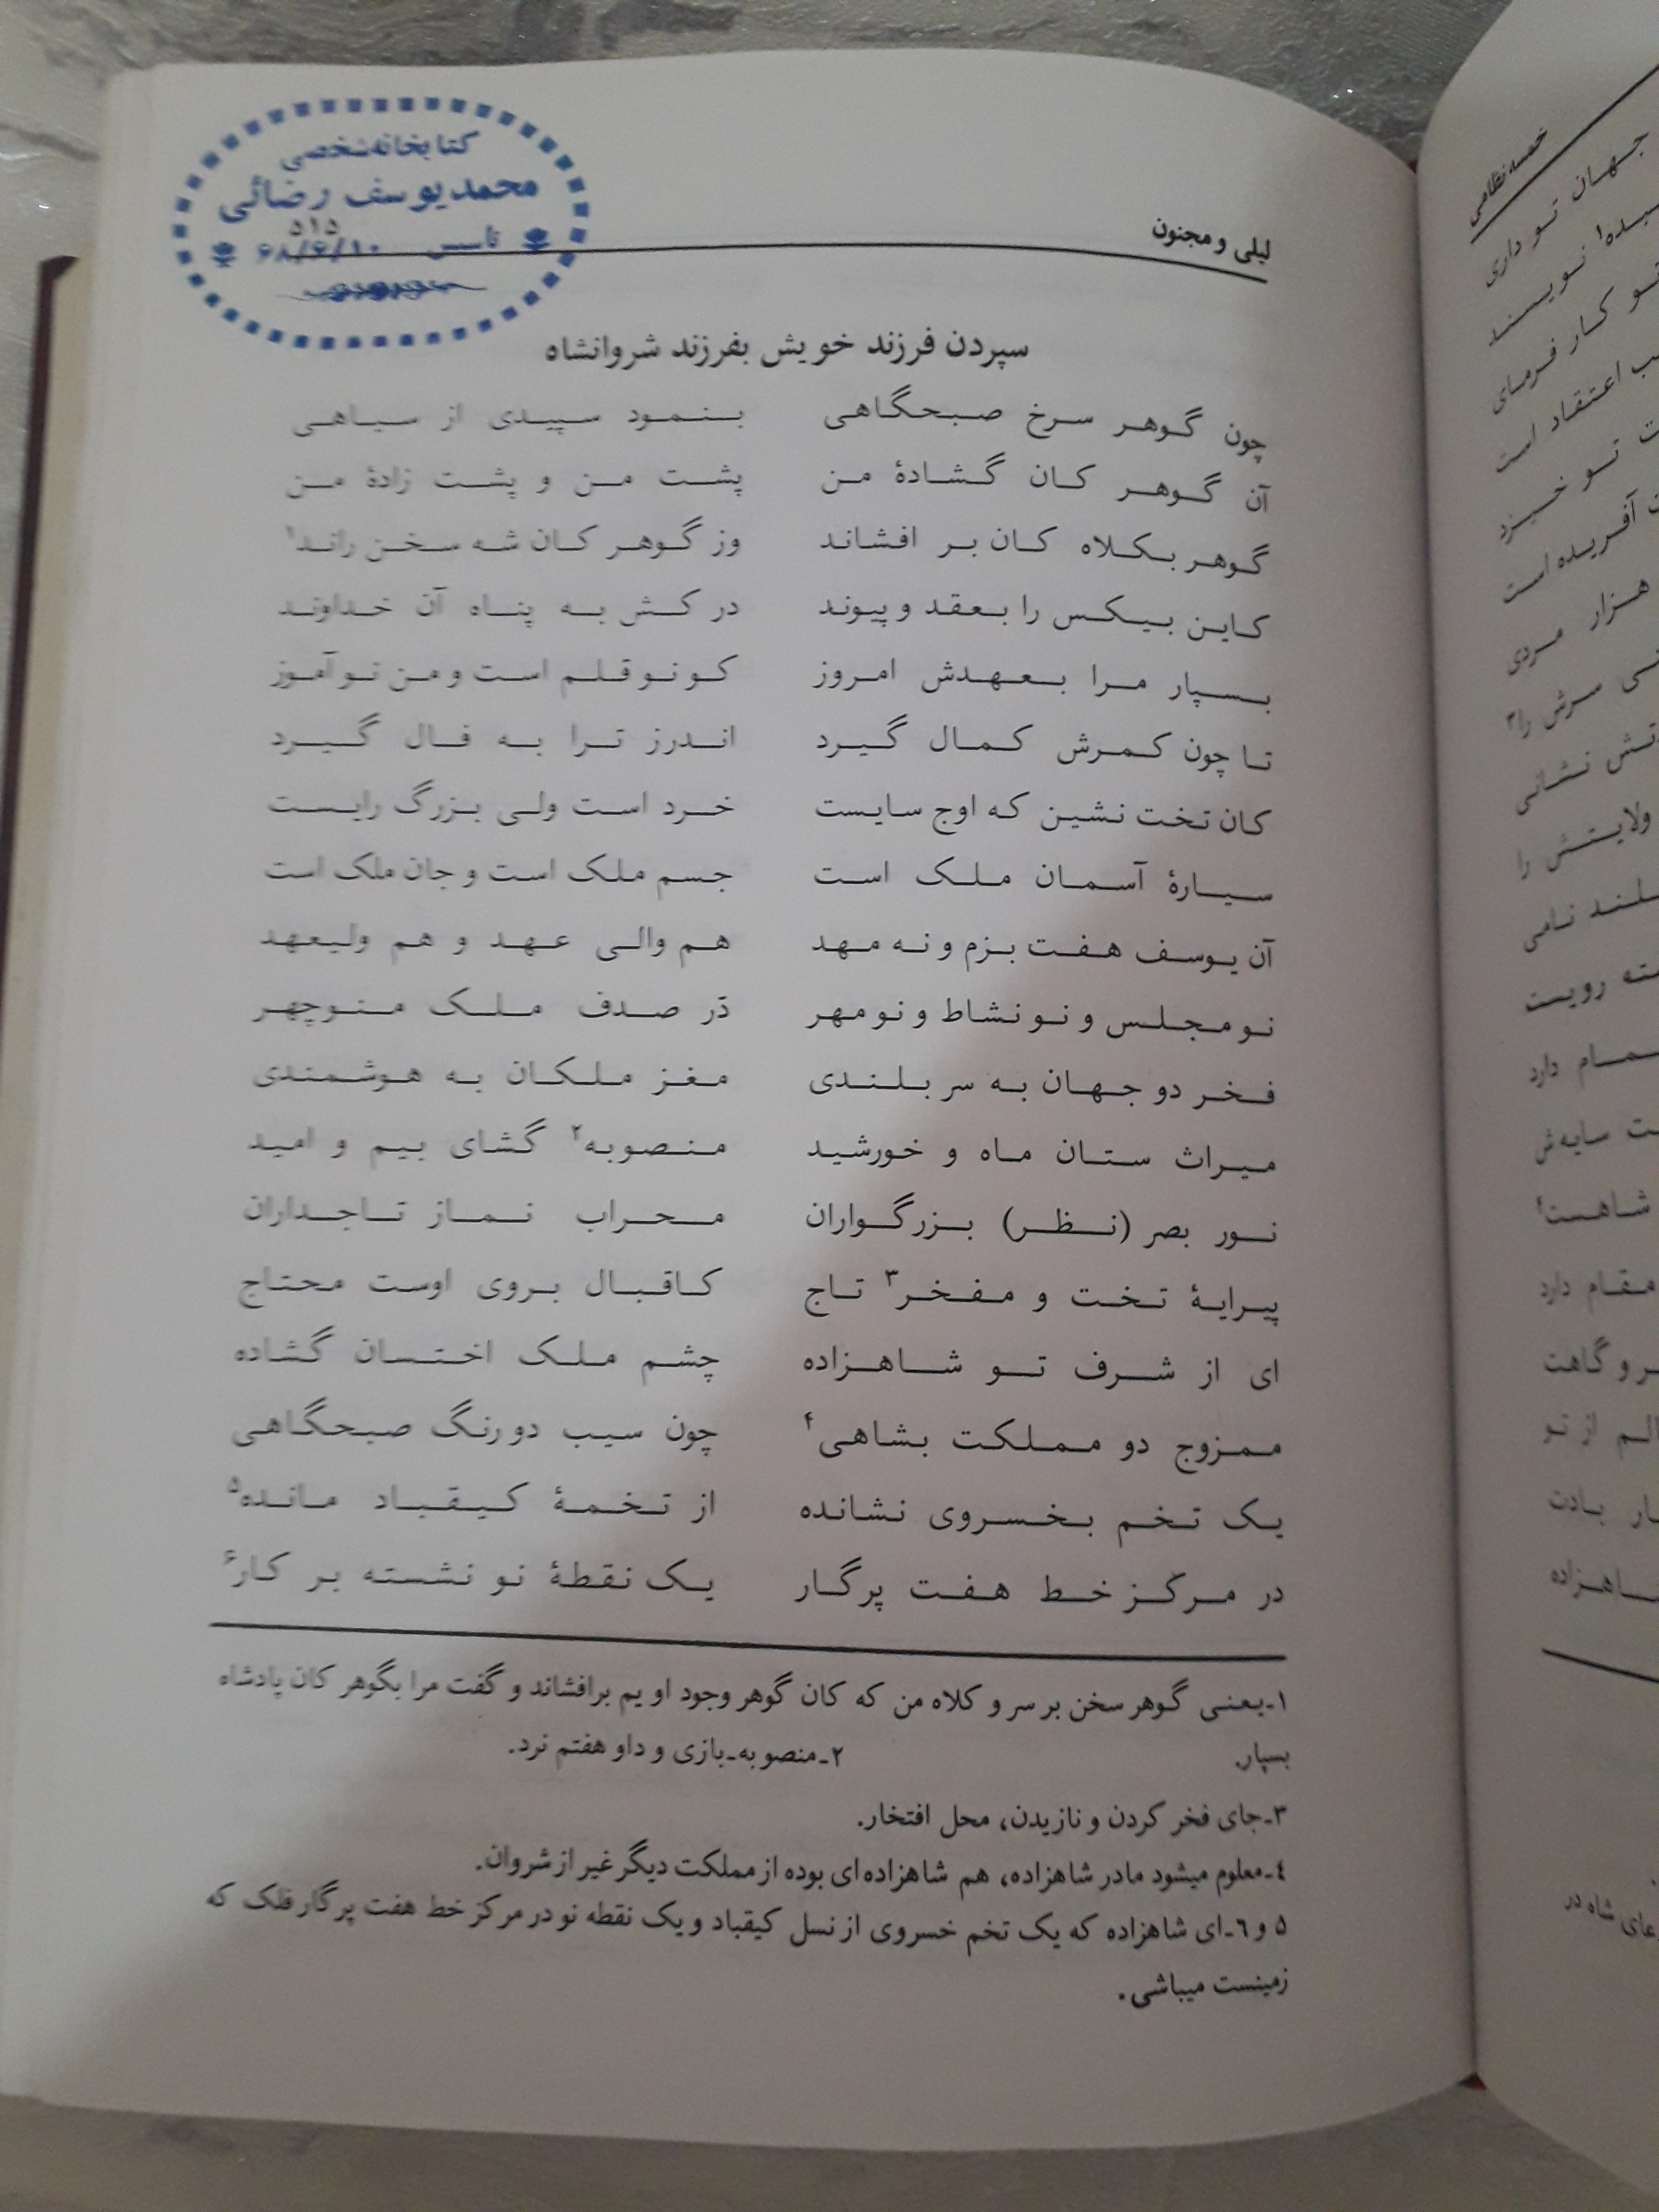 کتابخانه شخصی
محمد یوسف رضائی
۵۱۵
تأسیس ۶۸/۶/۱۰
لیلی و مجنون
سپردن فرزند خویش بفرزند شروانشاه
چون گوهر سرخ صبحگاهی بنمود سپیدی از سیاهی
آن گوهر کان گشادهٔ من پشت من و پشت زادهٔ من
گوهر بکلاه کان بر افشاند وز گوهر کان شه سخن راند۱
کاین بیکس را بعقد و پیوند در کش به پناه آن خداوند
بسپار مرا بعهدش امروز کو نو قلم است و من نو آموز
تا چون کمرش کمال گیرد اندرز ترا به فال گیرد
کان تخت نشین که اوج سایست خرد است ولی بزرگ رایست
سیارهٔ آسمان ملک است جسم ملک است و جان ملک است
آن یوسف هفت بزم و نه مهد هم والی عهد و هم ولیعهد
نو مجلس و نو نشاط و نو مهر دّر صدف ملک منوچهر
فخر دو جهان به سر بلندی مغز ملکان به هوشمندی
میراث ستان ماه و خورشید منصوبه۲ گشای بیم و امید
نور بصر (نظر) بزرگواران محراب نماز تاجداران
پیرایهٔ تخت و مفخر۳ تاج کاقبال بروی اوست محتاج
ای از شرف تو شاهزاده چشم ملک اختسان گشاده
ممزوج دو مملکت بشاهی۴ چون سیب دو رنگ صبحگاهی
یک تخم بخسروی نشانده از تخمهٔ کیقباد مانده۵
در مرکز خط هفت پرگار یک نقطهٔ نو نشسته بر کار۶
۱ـ یعنی گوهر سخن بر سر و کلاه من که کان گوهر وجود اویم برافشاند و گفت مرا بگوهر کان پادشاه
بسپار. ۲ـ منصوبه ـ بازی و داو هفتم نرد.
۳ـ جای فخر کردن و نازیدن، محل افتخار.
٤ـ معلوم میشود مادر شاهزاده، هم شاهزاده‌ای بوده از مملکت دیگر غیر از شروان.
۵ و ٦ـ ای شاهزاده که یک تخم خسروی از نسل کیقباد و یک نقطه نو در مرکز خط هفت پرگار فلک که
زمینست میباشی.
خمسه نظامی
جهان تو داری
نویسند
کار فرمای
اعتقاد است
تو خیزد
آفریده است
هزار مردی
سرش را۳
نشانی
ولایتش را
نامی
رویست
دارد
سایه‌ش
شاهست۴
مقام دارد
از تو
بادت
شاه در